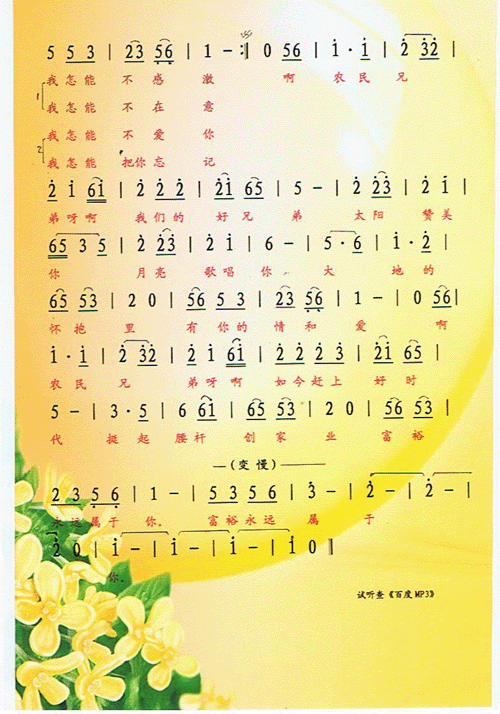 5 5 3 | 23 56 | 1 - :| 0 56 | i · i | 2 32 |
我怎能 不感 激 啊 农民 兄
1 我怎能 不在 意
我怎能 不爱 你
2 我怎能 把你忘 记
2 i 6i | 2 2 2 | 2i 65 | 5 - | 2 23 | 2 i |
弟呀啊 我们的 好兄 弟 太阳 赞美
65 3 5 | 2 23 | 2 i | 6 - | 5 · 6 | i · 2 |
你 月亮 歌唱 你 大 地的
65 53 | 2 0 | 56 5 3 | 23 56 | 1 - | 0 56 |
怀抱 里 有你的 情和 爱 啊
i · i | 2 32 | 2 i 6i | 2 2 2 3 | 2i 65 |
农民 兄 弟呀啊 如今赶上 好时
5 - | 3 · 5 | 6 6i | 53 53 | 2 0 | 56 53 |
代 挺起 腰杆 创家 业 富裕
—(变慢)—
2 3 5 6 | 1 - | 5 3 5 6 | 3 - | 2 - | 2 - |
永远属于 你. 富裕永远 属 于
2 0 | i - | i - | i - | i 0 ‖
你.
试听查《百度MP3》